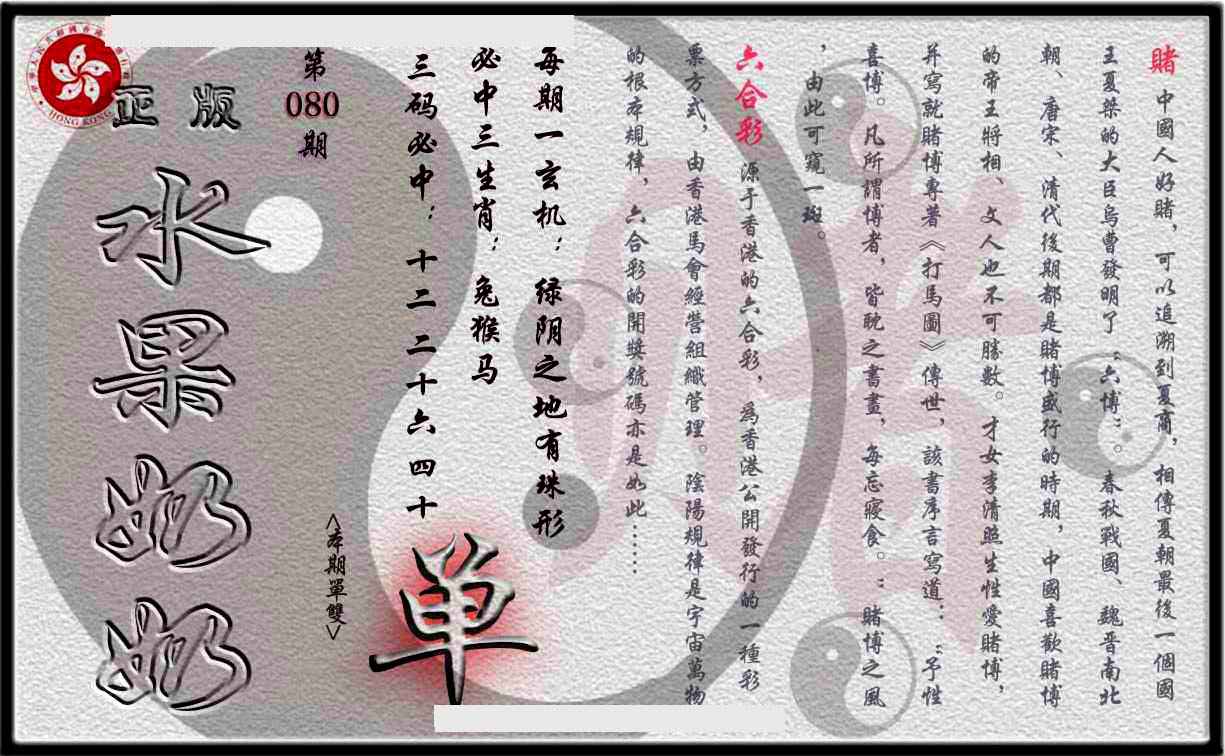 賭 中國人好賭，可以追溯到夏商，相傳夏朝最後一個國
王夏桀的大臣烏曹發明了“六博”。春秋戰國、魏晋南北
朝、唐宋、清代後期都是賭博盛行的時期，中國喜歡賭博
的帝王將相、文人也不可勝數。才女李清照生性愛賭博，
并寫就賭博專著《打馬圖》傳世，該書序言寫道：“予性
喜博。凡所謂博者，皆耽之書畫，每忘寢食。”賭博之風
，由此可窺一斑。
六合彩 源于香港的六合彩，為香港公開發行的一種彩
票方式，由香港馬會經營組織管理。陰陽規律是宇宙萬物
的根本規律，六合彩的開獎號碼亦是如此……
每期一玄机：绿阴之地有珠形
必中三生肖：兔猴马
三码必中：十二二十六四十
单
<本期單雙>
第
080
期
正版
水果奶奶
HONG KONG